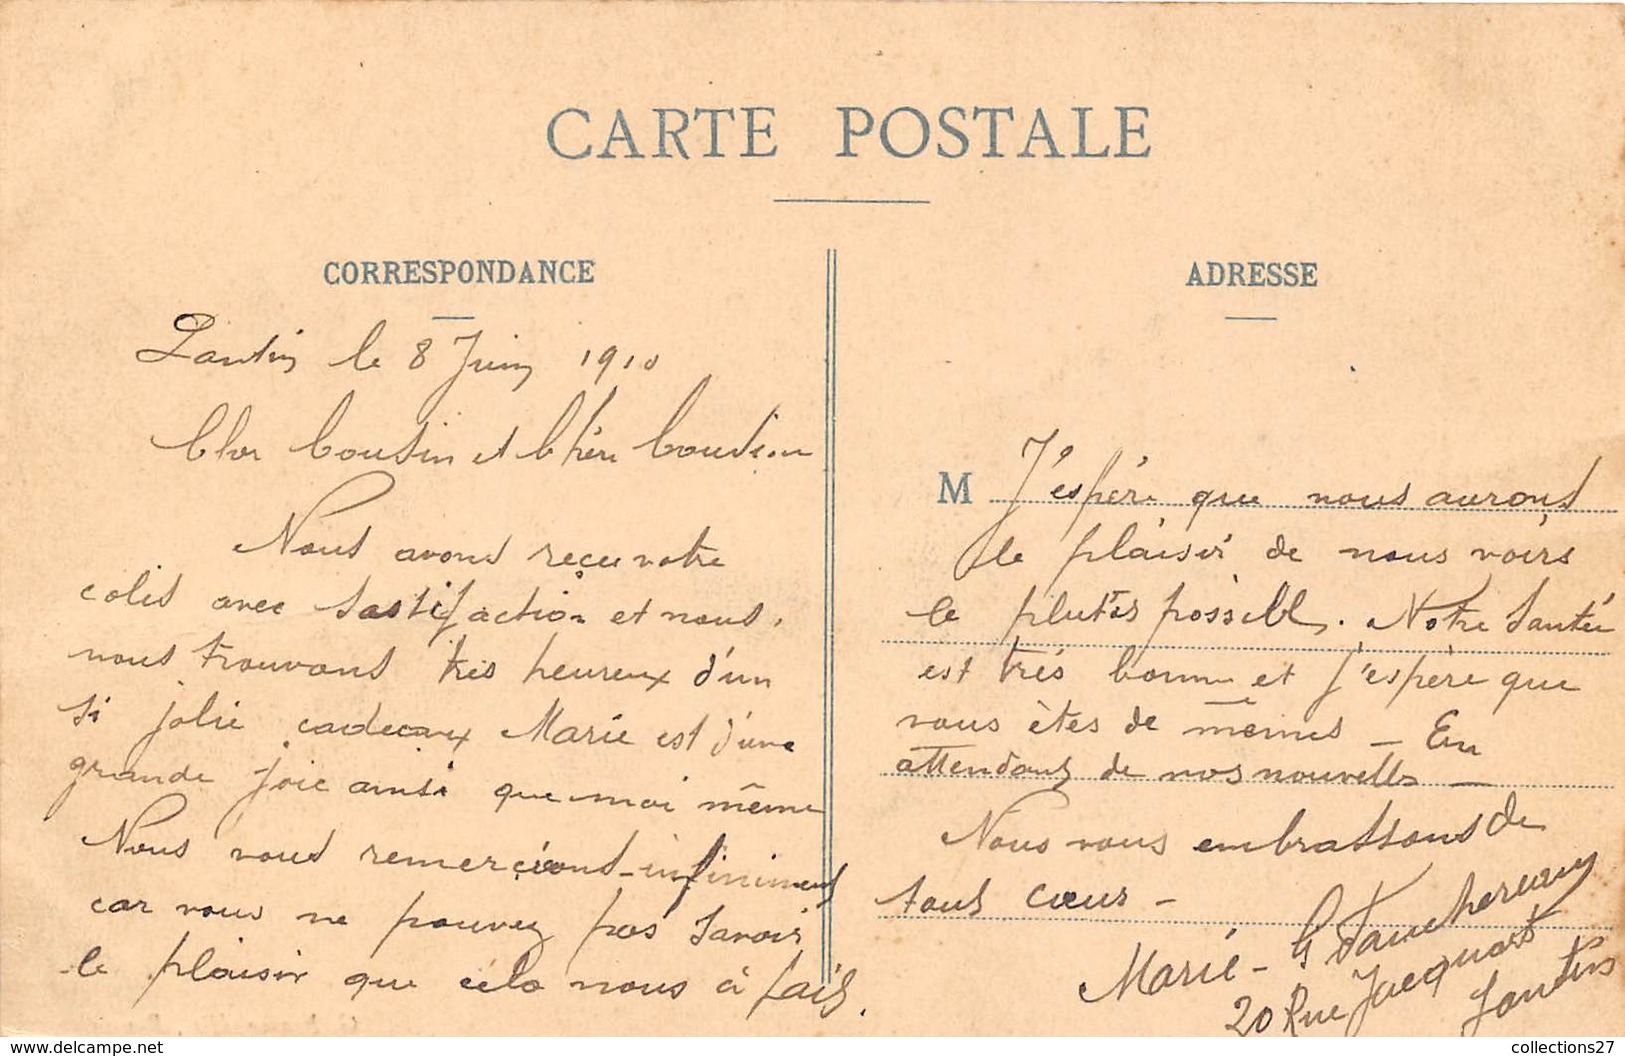 CARTE POSTALE
CORRESPONDANCE
Pantin le 8 Juin 1910
Cher Cousin et Chère Cousine
Nous avons reçu votre
colis avec sastifaction et nous.
nous trouvons très heureux d'un
si jolie cadeaux Marie est d'une
grande joie ainsi que moi même
Nous vous remercions infiniment
car vous ne pouvez pas savoir
le plaisir que cela nous à fais.
ADRESSE
M J'espére que nous aurons
le plaisir de nous voirs
le plutôs possible. Notre Santée
est très bonne et j'espère que
vous êtes de mêmes - En
attendant de nos nouvelles -
Nous vous embrassons de
tous cœur -
Marie - G
20 Rue Jacquart
Pantin
collections27